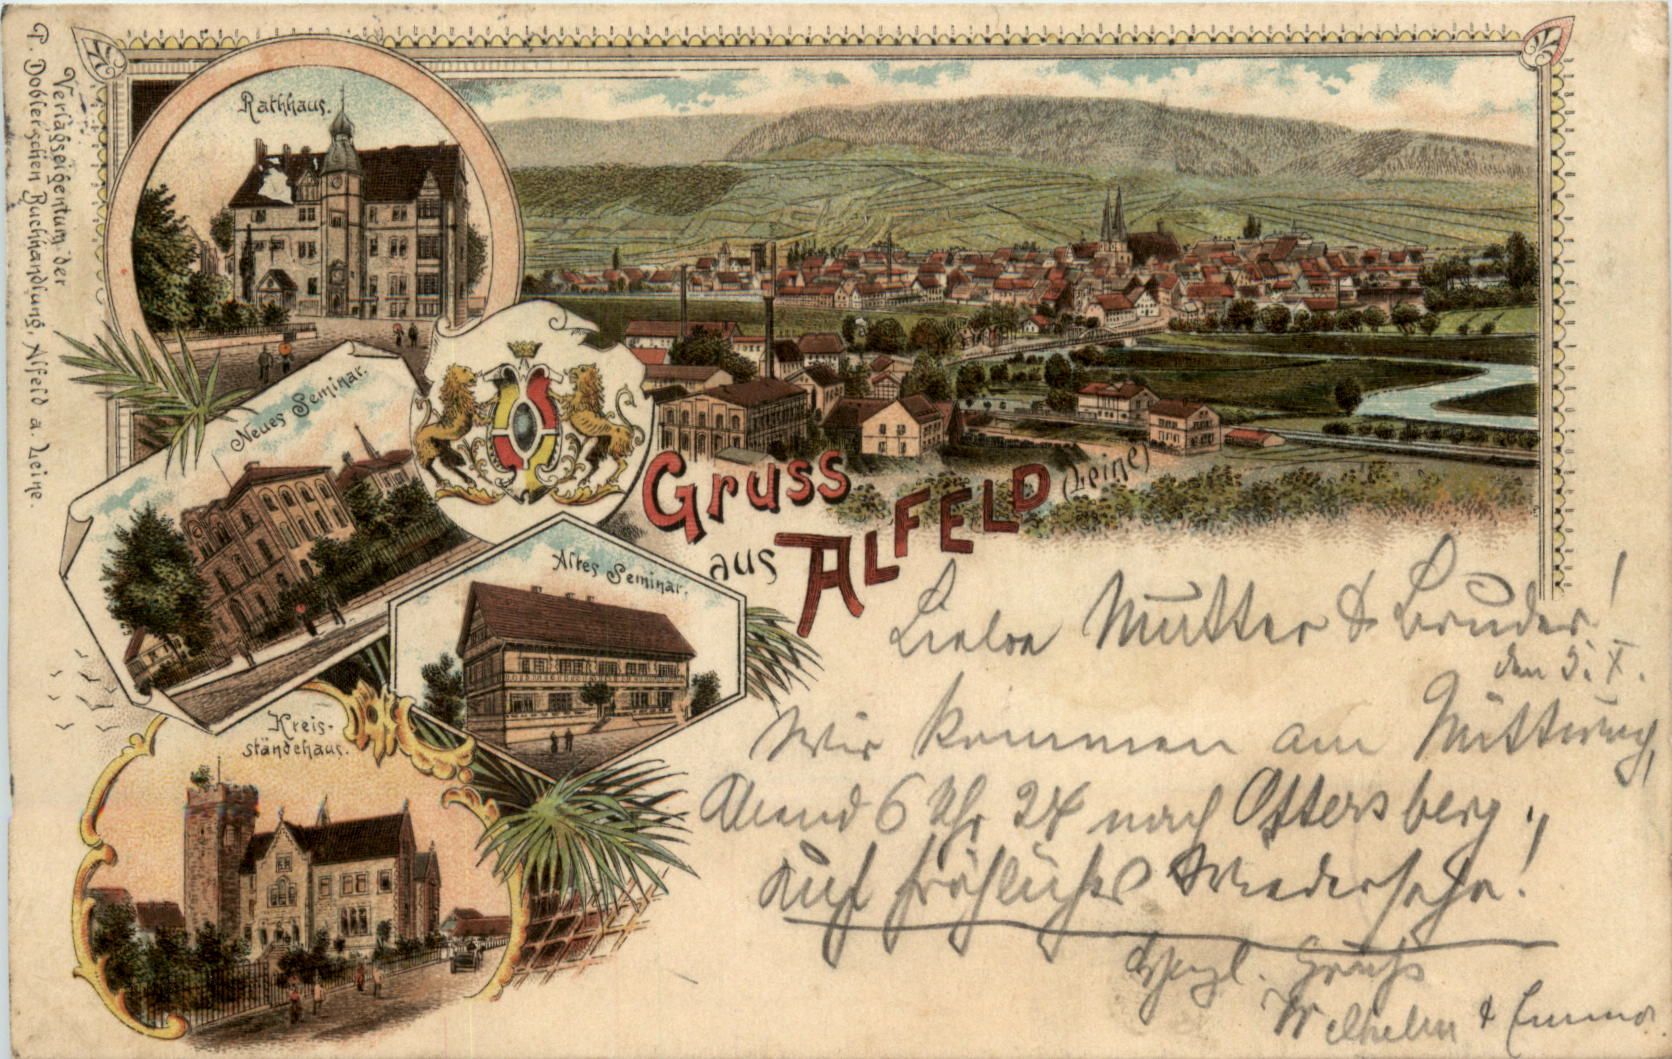 P. Dobler'schen Buchhandlung, Alfeld a. Leine.
Verlagseigentum der
Rathhaus.
Neues Seminar.
Altes Seminar.
Kreis-
ständehaus.
Gruss
aus ALFELD (Leine)
Liebe Mutter & Bruder!
den 3. X.
Wir kommen am Mittwoch,
Abend 6 Uhr 24 nach Ottersberg.,
Auf fröhliches Wiedersehn!
Herzl. Gruß
Wilhelm & Emma